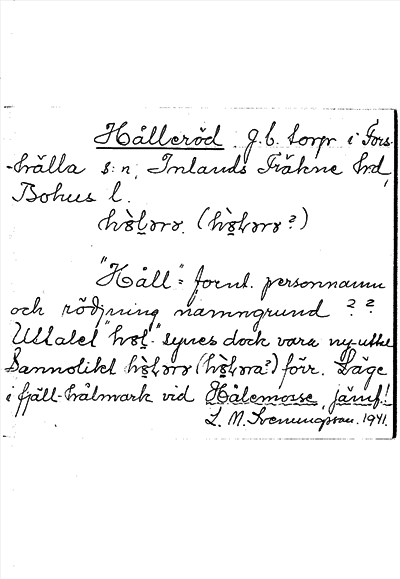 Hålleröd g.b. torp i Fors-
-hälla s:n, Inlands Fräkne hrd,
Bohus l.
"Håll" = fornt. personnamn
och rödjning namngrund ? ?
Uttalet synes dock vara ny-uttal
Sannolikt förr. Läge
i fjäll-hålmark vid Hålemosse, jämf.!
L. M. Svenungsson. 1941.